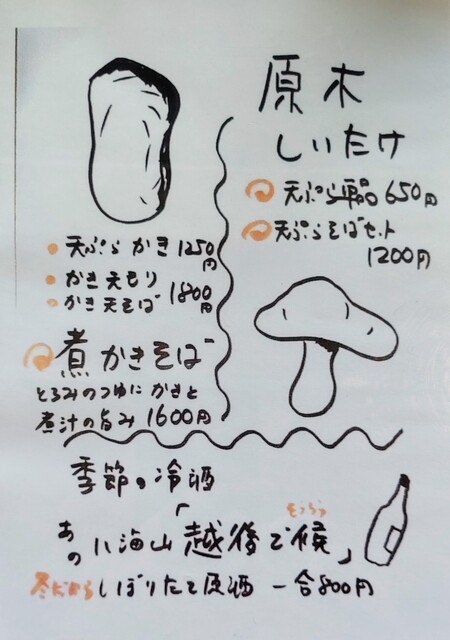 原木
しいたけ
天ぷら単品 650円
天ぷらそばセット
1200円
天ぷら かき 1250円
かき天もり
かき天そば 1800円
煮かきそば
とろみのつゆに かきと
煮汁の旨み 1600円
季節の冷酒
あの 八海山「越後で候」
そうろう
冬だから しぼりたて原酒 一合800円